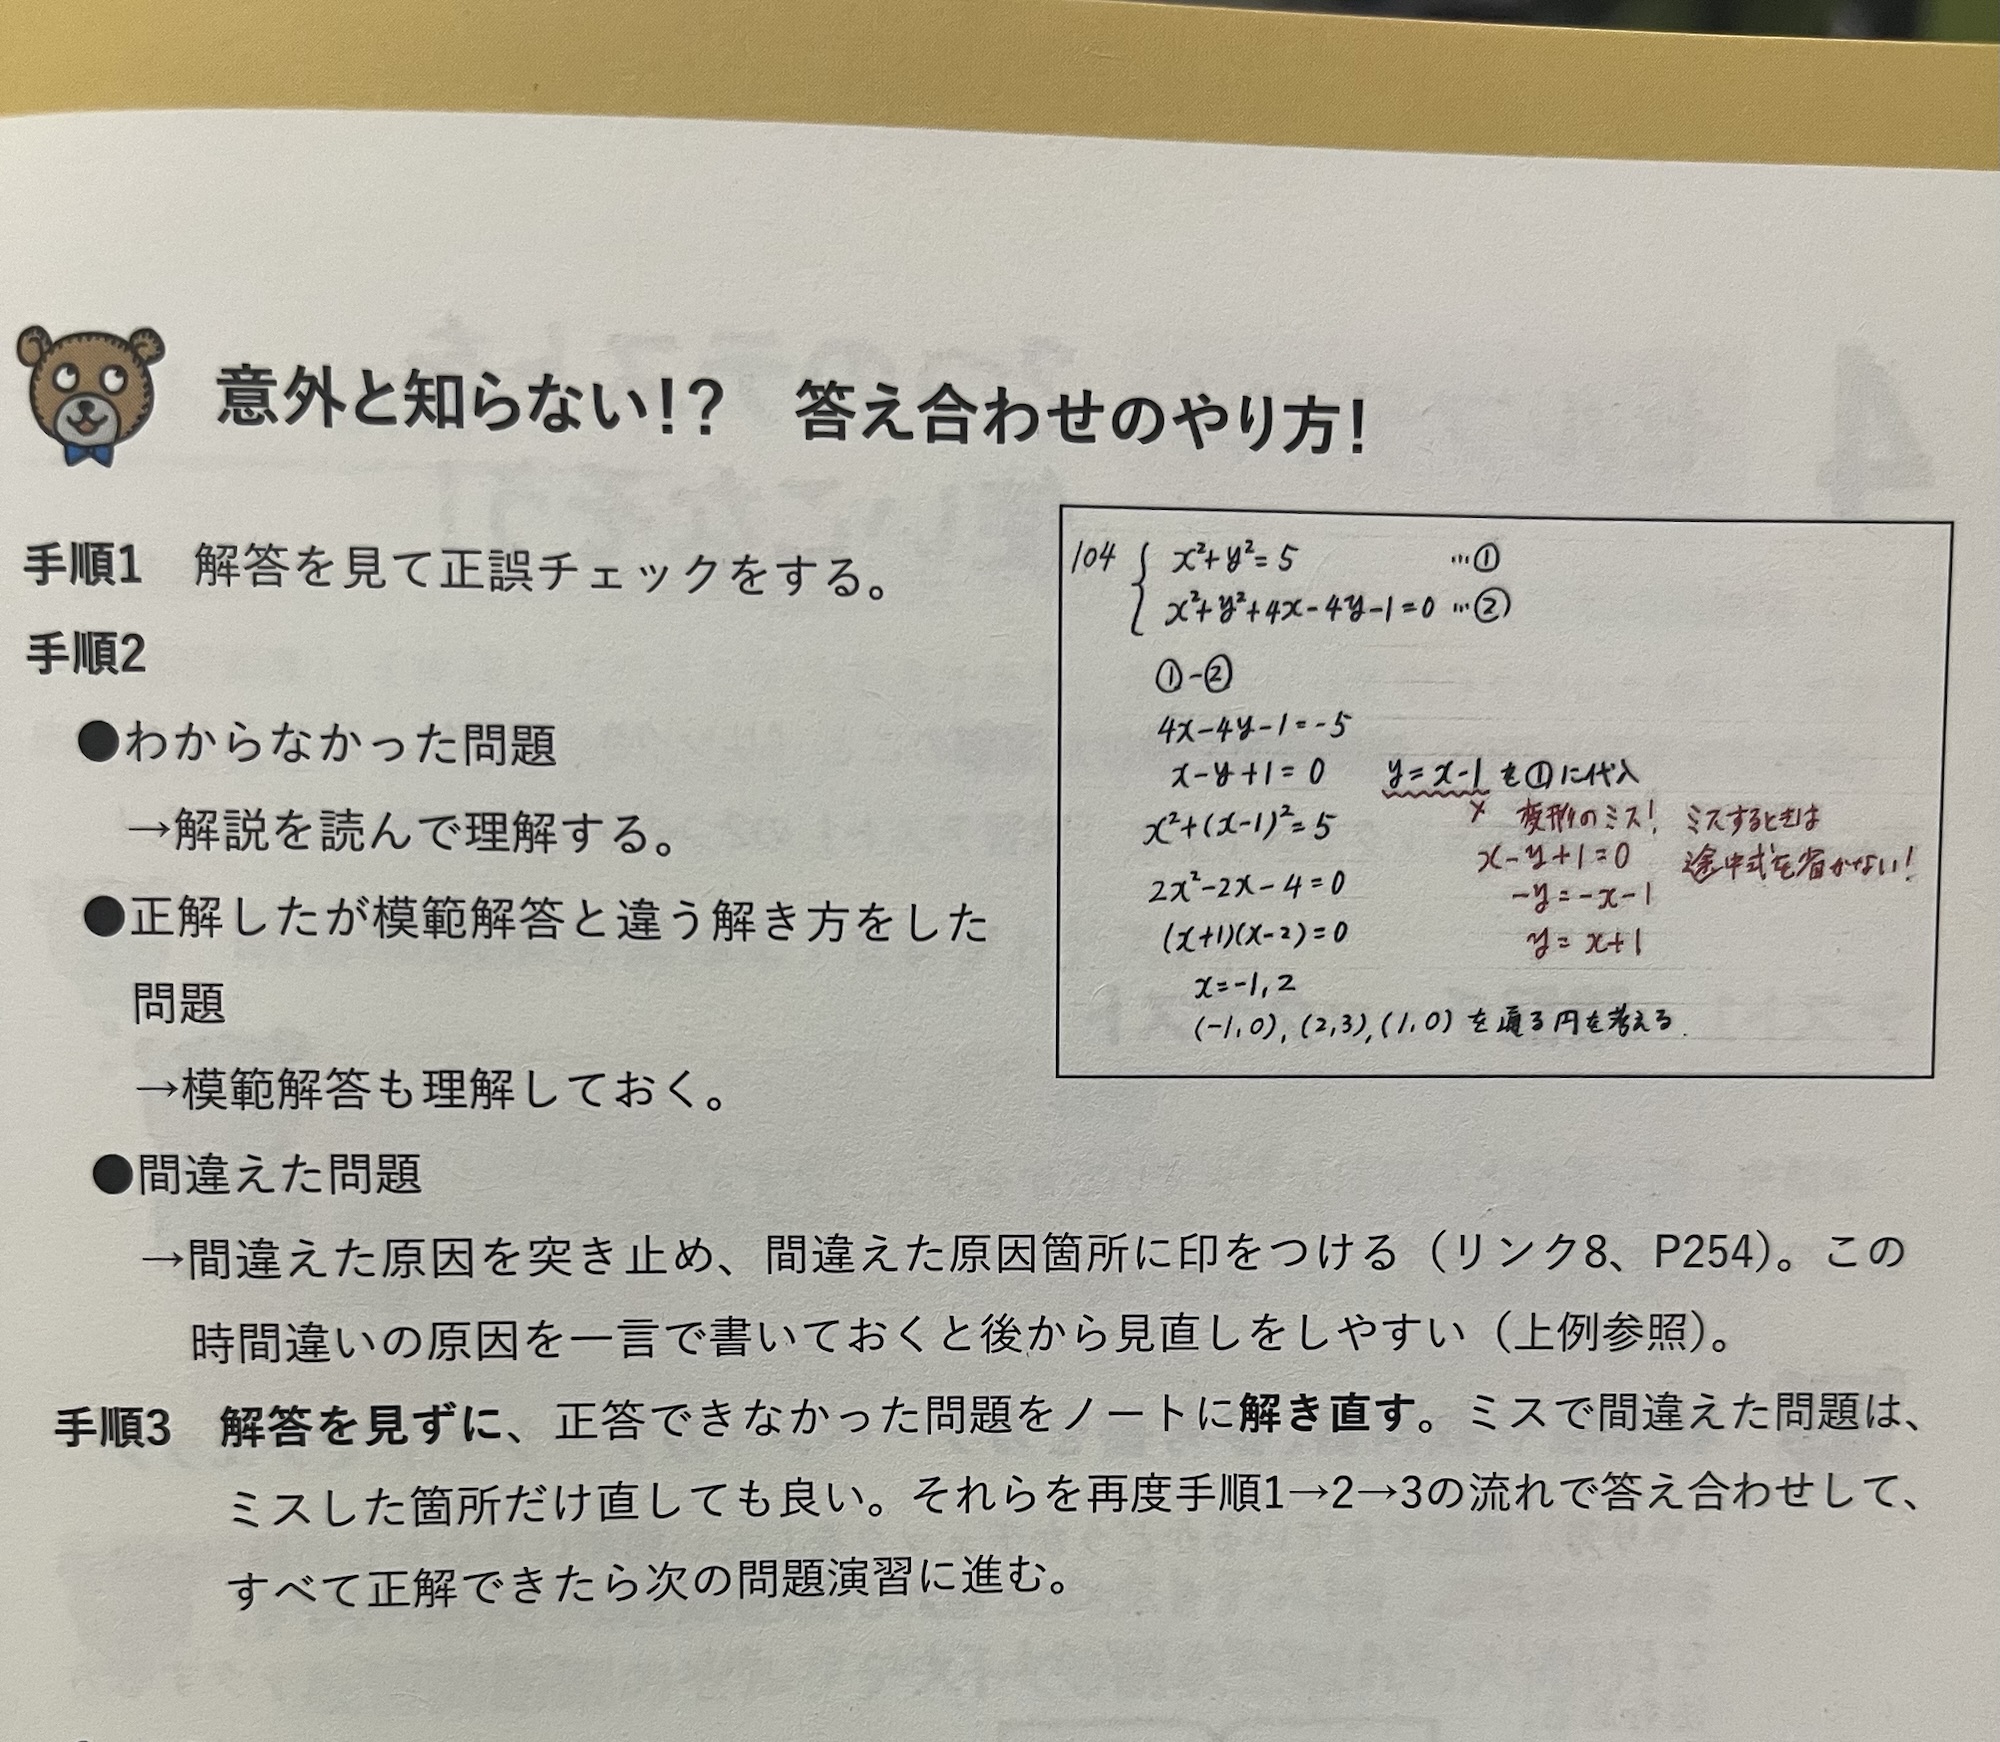 意外と知らない!?　答え合わせのやり方!
手順1　解答を見て正誤チェックをする。
手順2
●わからなかった問題
→解説を読んで理解する。
●正解したが模範解答と違う解き方をした
問題
→模範解答も理解しておく。
104 { x²+y²=5 …①
x²+y²+4x-4y-1=0 …②
①-②
4x-4y-1=-5
x-y+1=0　y=x-1を①に代入
x²+(x-1)²=5
2x²-2x-4=0
(x+1)(x-2)=0
x=-1,2
(-1,0),(2,3),(1,0)を通る円を考える.
× 変形のミス!　ミスするときは
x-y+1=0　途中式を省かない!
-y=-x-1
y=x+1
●間違えた問題
→間違えた原因を突き止め、間違えた原因箇所に印をつける（リンク8、P254）。この
時間違いの原因を一言で書いておくと後から見直しをしやすい（上例参照）。
手順3　解答を見ずに、正答できなかった問題をノートに解き直す。ミスで間違えた問題は、
ミスした箇所だけ直しても良い。それらを再度手順1→2→3の流れで答え合わせして、
すべて正解できたら次の問題演習に進む。